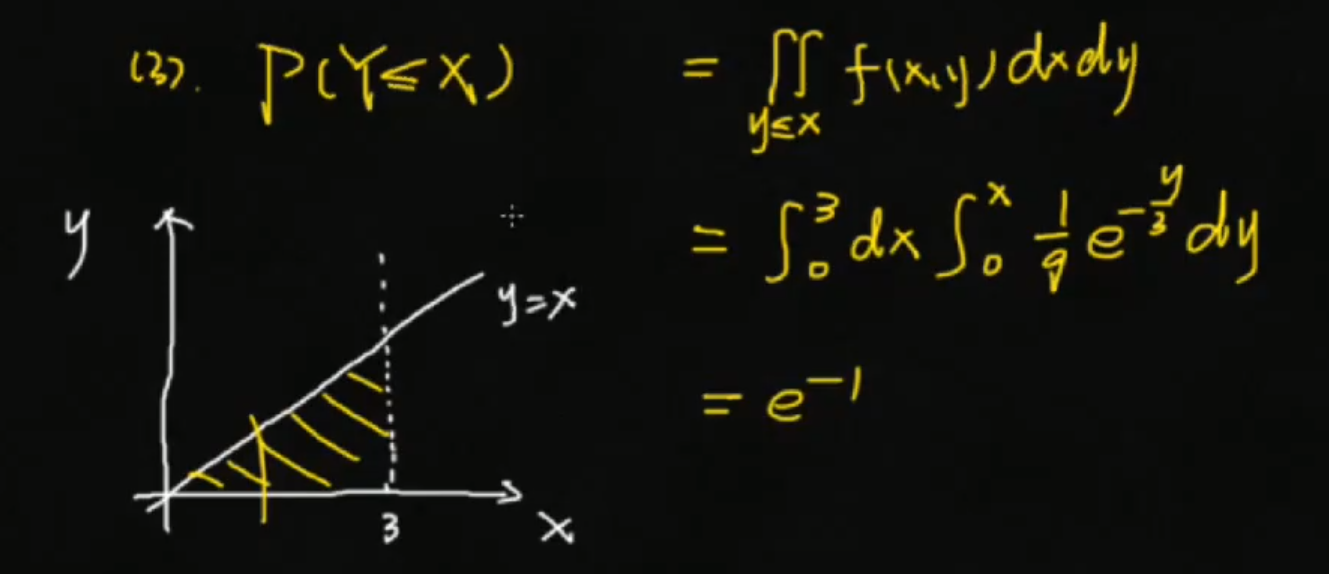 (3). P(Y≤X) = ∬_{y≤x} f(x,y)dxdy
= ∫_0^3 dx ∫_0^x \frac{1}{9} e^{-\frac{y}{3}} dy
= e^{-1}
y
y=x
3
x